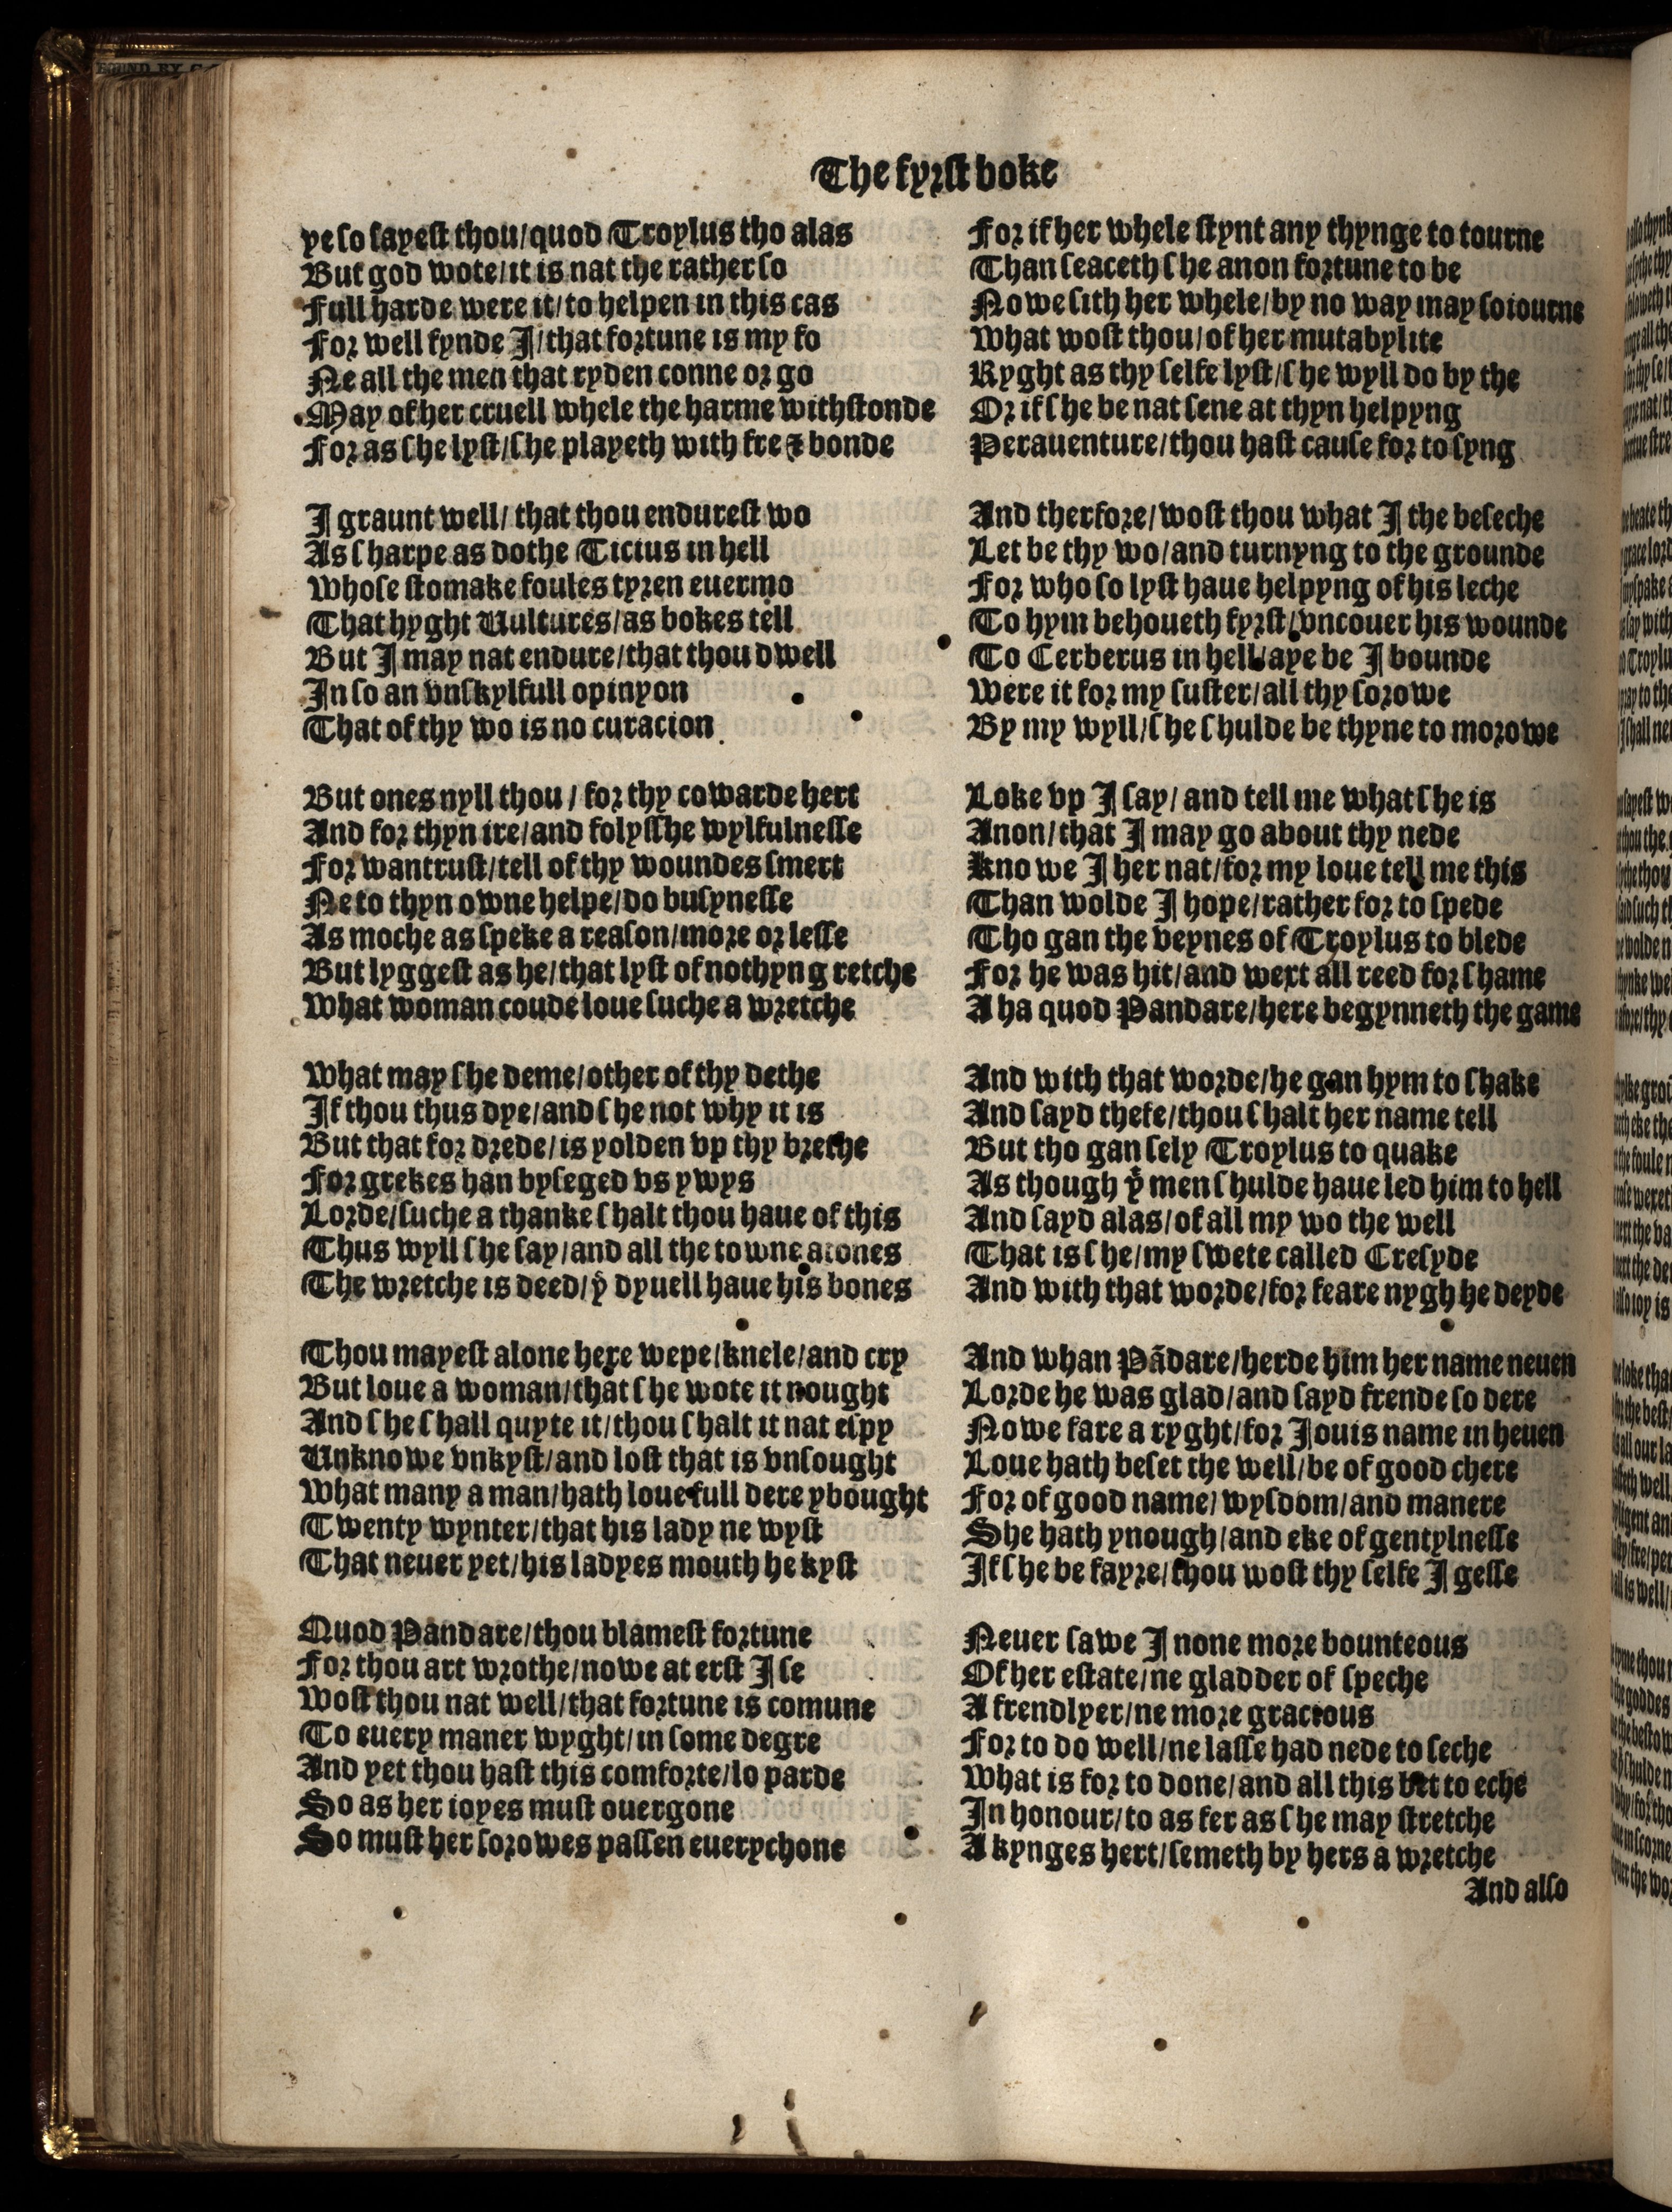 The fyrſt boke
ye ſo ſayeſt thou/quod Troylus tho alas
But god wote/it is nat the rather ſo
Full harde were it/to helpen in this cas
For well fynde I/that fortune is my fo
Ne all the men that ryden conne or go
May of her cruell whele the harme withſtonde
For as ſhe lyſt/ſhe playeth with fre & bonde
I graunt well/ that thou endureſt wo
As ſharpe as dothe Ticius in hell
Whoſe ſtomake foules tyren euermo
That hyght Uultures/as bokes tell
But I may nat endure/that thou dwell
In ſo an vnſkylfull opinyon
That of thy wo is no curacion
But ones nyll thou / for thy cowarde hert
And for thyn ire/and folyſſhe wylfulneſſe
For wantruſt/tell of thy woundes ſmert
Ne to thyn owne helpe/do buſyneſſe
As moche as ſpeke a reaſon/more or leſſe
But lyggeſt as he/that lyſt of nothyng retche
What woman coude loue ſuche a wretche
What may ſhe deme/other of thy dethe
If thou thus dye/and ſhe not why it is
But that for drede/is yolden vp thy brethe
For grekes han byſeged vs ywys
Lorde/ſuche a thanke ſhalt thou haue of this
Thus wyll ſhe ſay/and all the towne atones
The wretche is deed/yͤ dyuell haue his bones
Thou mayeſt alone here wepe/knele/and cry
But loue a woman/that ſhe wote it nought
And ſhe ſhall quyte it/thou ſhalt it nat eſpy
Unknowe vnkyſt/and loſt that is vnſought
What many a man/hath loue full dere ybought
Twenty wynter/that his lady ne wyſt
That neuer yet/his ladyes mouth he kyſt
Quod Pandare/thou blameſt fortune
For thou art wrothe/nowe at erſt I ſe
Woſt thou nat well/that fortune is comune
To euery maner wyght/in ſome degre
And yet thou haſt this comforte/lo parde
So as her ioyes muſt ouergone
So muſt her ſorowes paſſen euerychone
For if her whele ſtynt any thynge to tourne
Than ſeaceth ſhe anon fortune to be
Nowe ſith her whele/by no way may ſoiourne
What woſt thou/of her mutabylite
Ryght as thy ſelfe lyſt/ſhe wyll do by the
Or if ſhe be nat ſene at thyn helpyng
Perauenture/thou haſt cauſe for to ſyng
And therfore/woſt thou what I the beſeche
Let be thy wo/and turnyng to the grounde
For who ſo lyſt haue helpyng of his leche
To hym behoueth fyrſt/vncouer his wounde
To Cerberus in hell/aye be I bounde
Were it for my ſuſter/all thy ſorowe
By my wyll/ſhe ſhulde be thyne to morowe
Loke vp I ſay/ and tell me what ſhe is
Anon/that I may go about thy nede
Knowe I her nat/for my loue tell me this
Than wolde I hope/rather for to ſpede
Tho gan the veynes of Troylus to blede
For he was hit/and wext all reed for ſhame
A ha quod Pandare/here begynneth the game
And with that worde/he gan hym to ſhake
And ſayd thefe/thou ſhalt her name tell
But tho gan ſely Troylus to quake
As though yͤ men ſhulde haue led him to hell
And ſayd alas/of all my wo the well
That is ſhe/my ſwete called Creſyde
And with that worde/for feare nygh he deyde
And whan Pādare/herde him her name neuen
Lorde he was glad/and ſayd frende ſo dere
Nowe fare a ryght/for Iouis name in heuen
Loue hath beſet the well/be of good chere
For of good name/wyſdom/and manere
She hath ynough/and eke of gentylneſſe
If ſhe be fayre/thou woſt thy ſelfe I geſſe
Neuer ſawe I none more bounteous
Of her eſtate/ne gladder of ſpeche
A frendlyer/ne more gracious
For to do well/ne laſſe had nede to ſeche
What is for to done/and all this bet to eche
In honour/to as fer as ſhe may ſtretche
A kynges hert/ſemeth by hers a wretche
And alſo